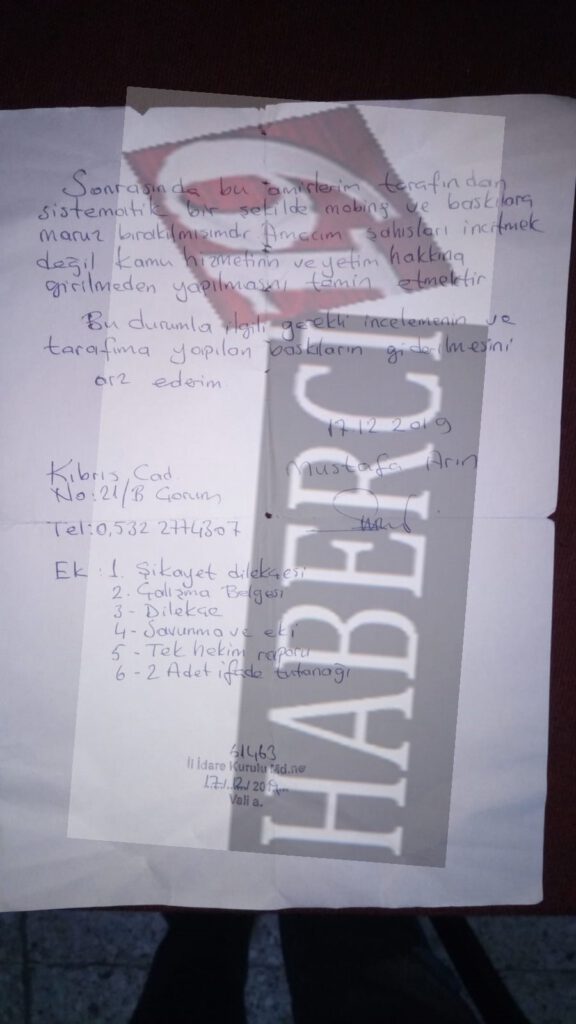 Sonrasında bu amirlerim tarafından
sistematik bir şekilde mobing ve baskılara
maruz bırakılmışımdır Amacım şahısları incitmek
değil kamu hizmetinin ve yetim hakkına
girilmeden yapılmasını temin etmektir
Bu durumla ilgili gerekli incelemenin ve
tarafıma yapılan baskıların giderilmesini
arz ederim
17.12.2019
Mustafa Arın
Kıbrıs Cad.
No:21/B Çorum
Tel:0,532 2774307
Ek : 1. Şikayet dilekçesi
2. Çalışma Belgesi
3- Dilekçe
4- Savunma ve eki
5- Tek hekim raporu
6- 2 Adet ifade tutanağı
61463
İl İdare Kurulu Md.ne
17.12.2019
Vali a.
HABERCİ